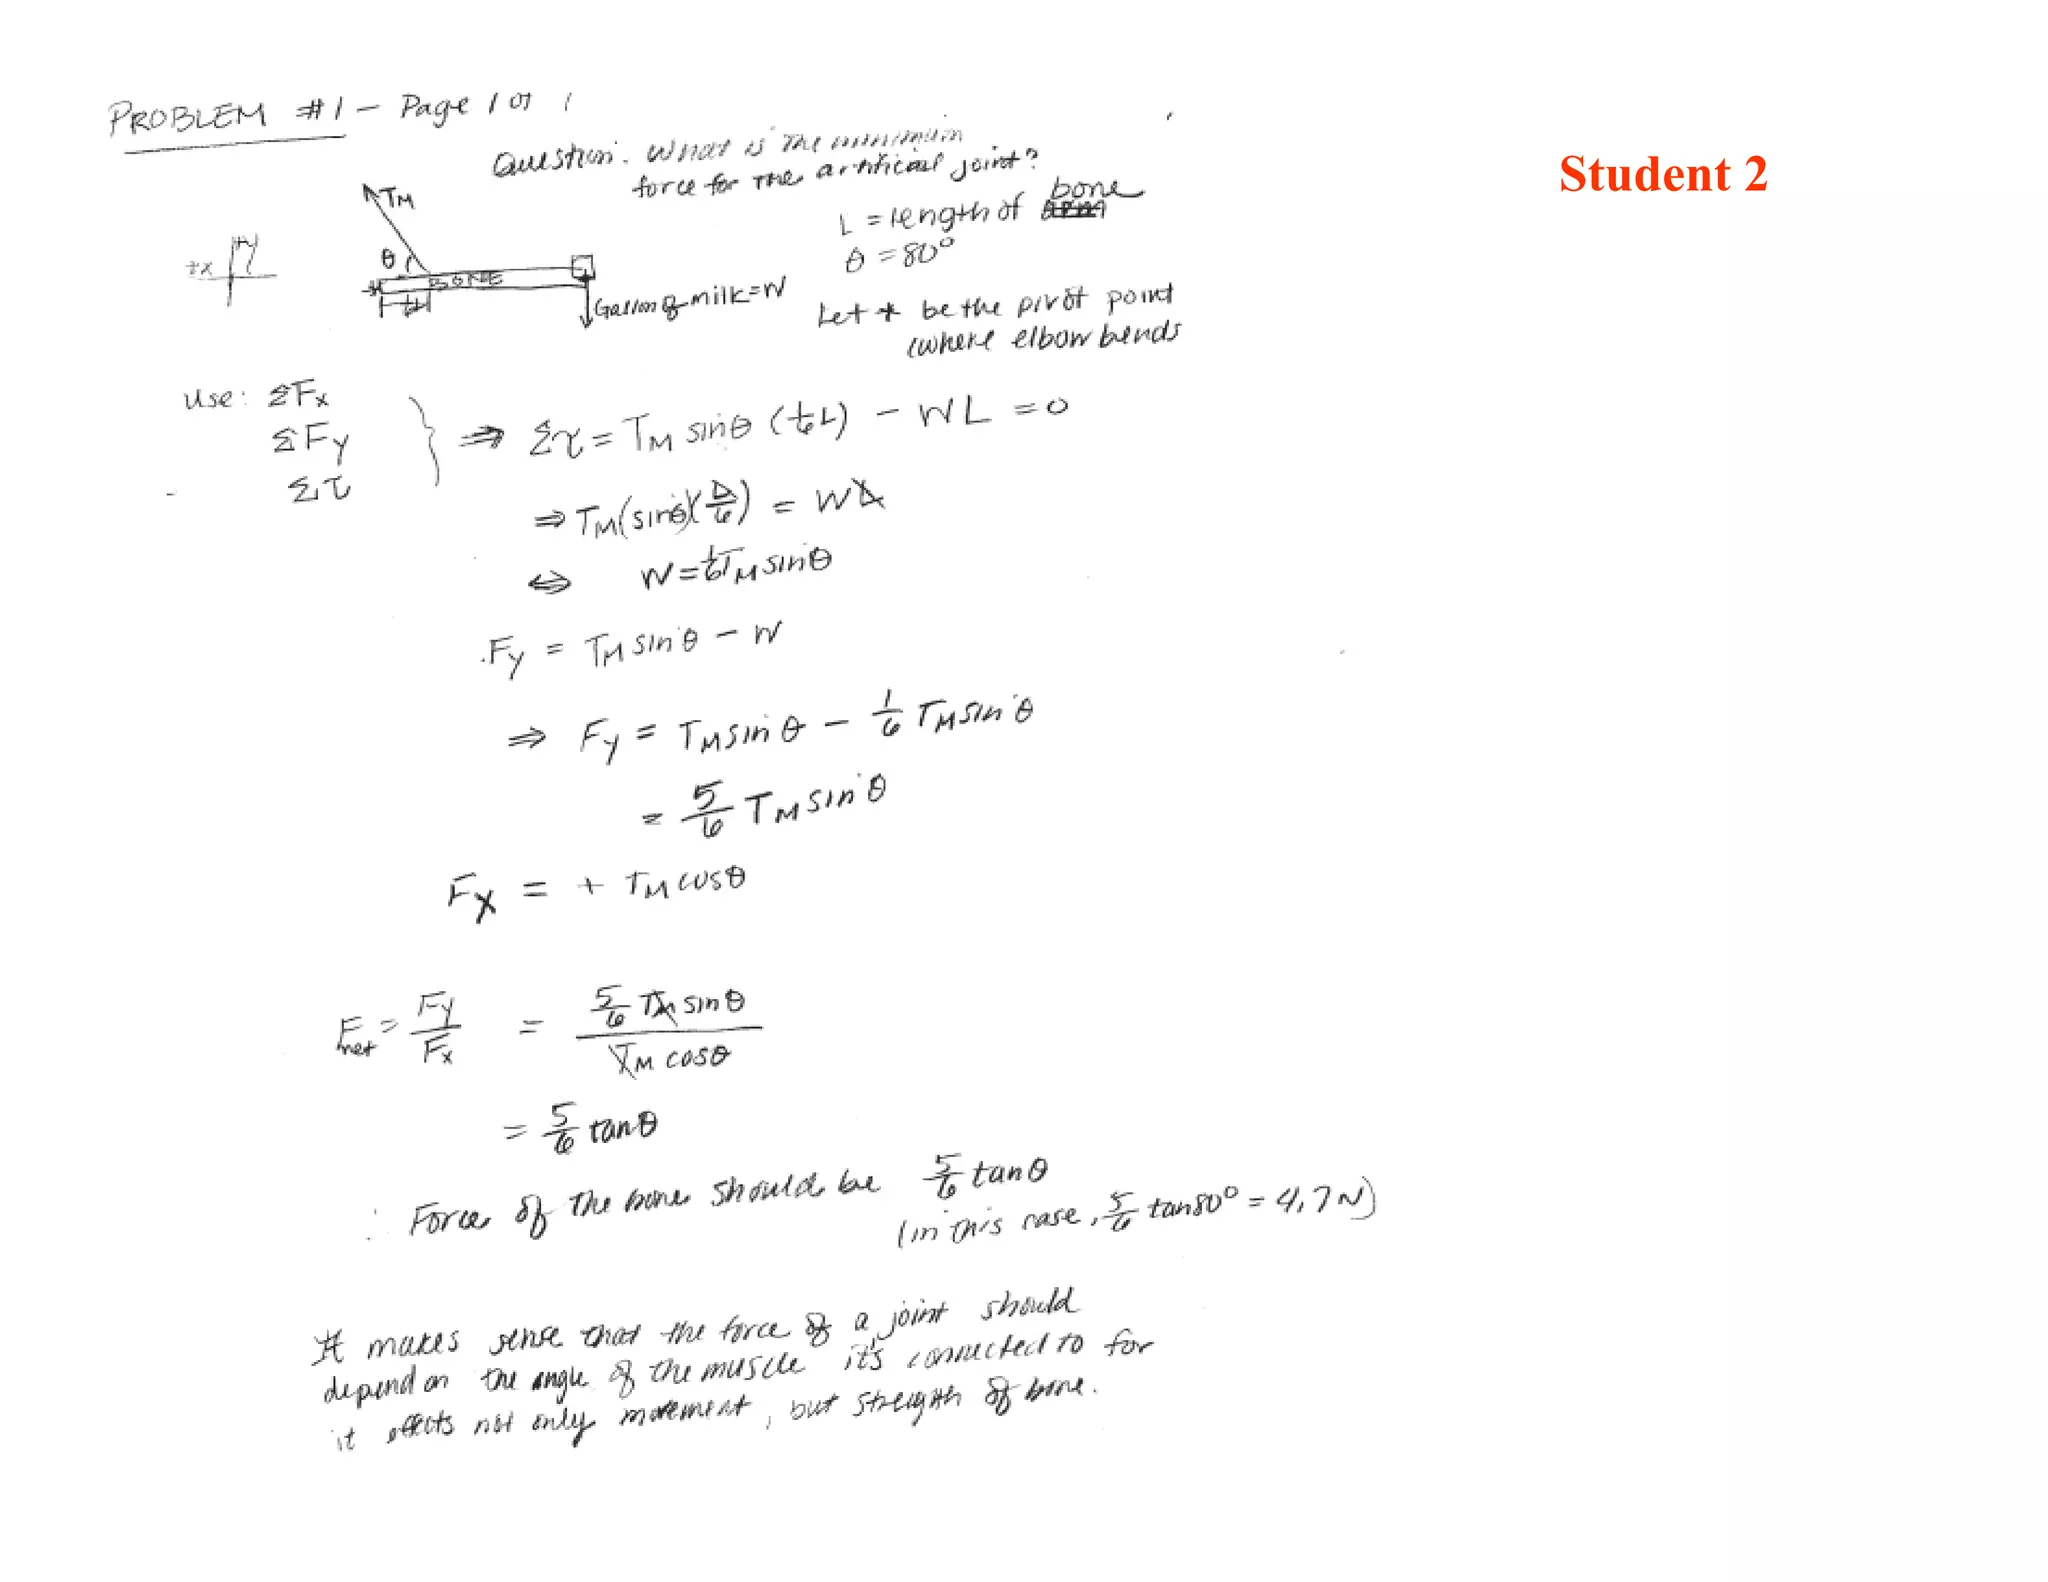 PROBLEM #1 – Page 1 of 1
Student 2
Question: What is the minimum
force for the artificial joint?
TM
L = length of bone
θ
θ = 80°
+y
+x
BONE
1/6 L
Gallon of milk = W
Let * be the pivot point
(where elbow bends
Use: ΣFx
ΣFy
Στ
⇒ Στ = TM sinθ (1/6 L) – WL = 0
⇒ TM(sinθ)(L/6) = WL
⇔ W = 1/6 TM sinθ
Fy = TM sinθ – W
⇒ Fy = TM sinθ – 1/6 TM sinθ
= 5/6 TM sinθ
Fx = + TM cosθ
Fnet = Fy/Fx = 5/6 TM sinθ / TM cosθ
= 5/6 tanθ
∴ Force of the bone should be 5/6 tanθ
(in this case, 5/6 tan80° = 4.7N)
It makes sense that the force of a joint should
depend on the angle of the muscle it's connected to for
it effects not only movement, but strength of bone.